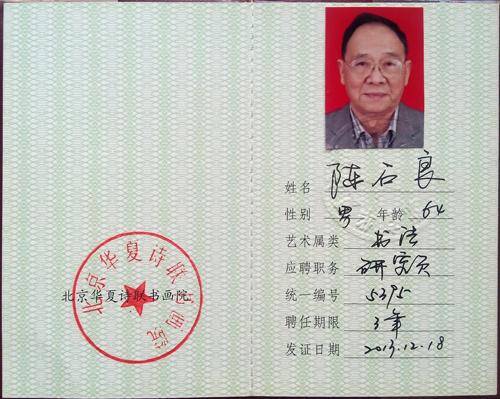 北京华夏诗联书画院
北京华夏诗联书画院
姓名 陈石良
性别 男 年龄 64
艺术属类 书法
应聘职务 研究员
统一编号 5395
聘任期限 3年
发证日期 2013.12.18